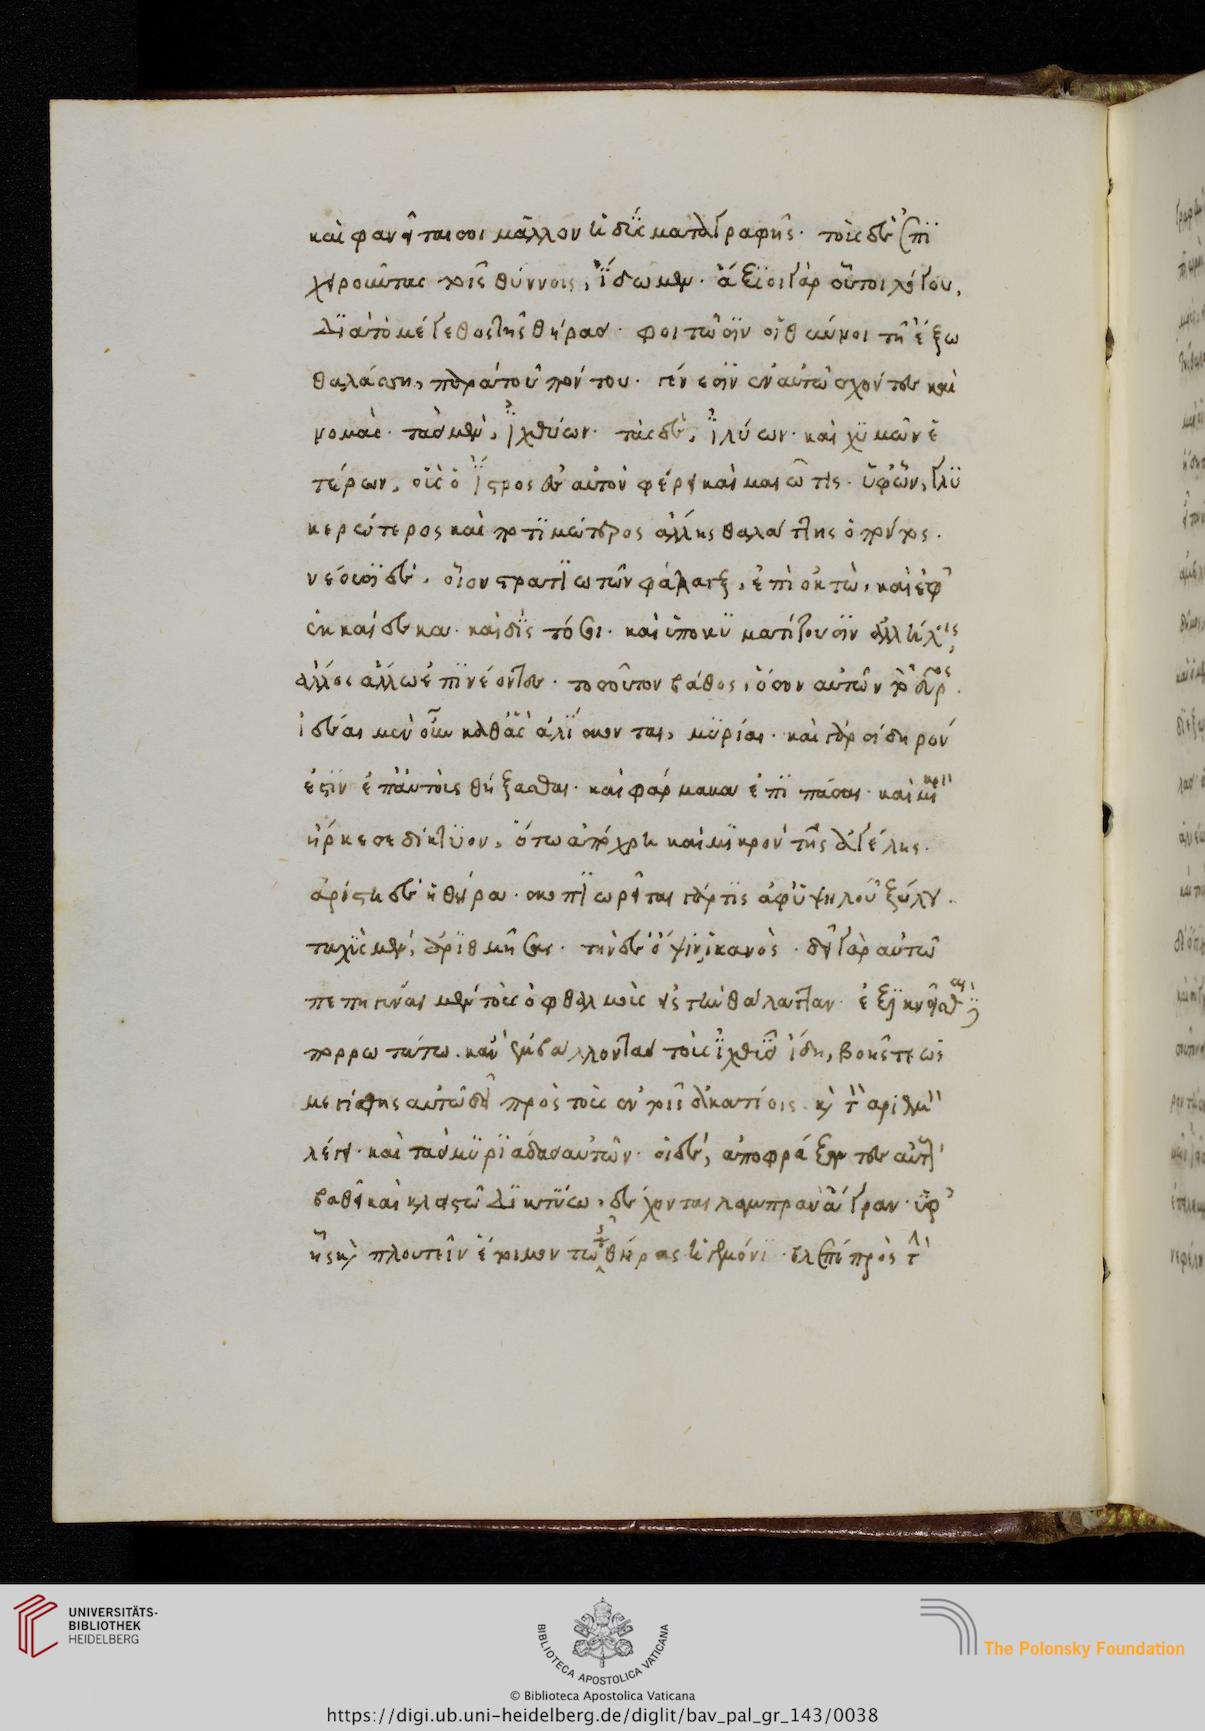 καὶ φανεῖταί σοι μᾶλλον ἡ διασκματα γραφῆς· τοὺς δὲ ἐπι
χειροῦντας τοῖς θύννοις, ἴδωμεν· ἄξιοι γὰρ οὗτοι λόγου,
διὰ τὸ μέγεθος τῆς θήρας· φοιτῶσιν οἱ θύννοι τῇ ἔξω
θαλάσσῃ, παρὰ τοῦ πόντου· γένεσιν ἐν αὐτῷ σχόντες καὶ
νομὰς· τὰς μὲν, ἰχθύων· τὰς δὲ, ἰλύων· καὶ χυμῶν ἑ
τέρων, οὓς ὁ ἴστρος ἐς αὐτὸν φέρει καὶ μαιῶτις· ὑφ' ὧν, γλυ
κερώτερος καὶ ποτιμώτερος ἄλλης θαλάττης ὁ πόντος.
νέουσι δὲ, οἷον στρατιωτῶν φάλαγξ, ἐπὶ ὀκτὼ, καὶ ἐφ'
ἑκκαίδεκα· καὶ δὶς τόσοι· καὶ ὑποκυματίζουσιν ἀλλήλοις,
ἄλλος ἄλλῳ ἐπινέοντες· τοσοῦτον βάθος, ὅσον αὐτῶν τὸ εὖρος.
ἰδέαι μὲν οὖν καθ' ἃς ἁλίσκονται, μυρίαι· καὶ γὰρ σίδηρον
ἐστὶν ἐπ' αὐτοὺς θήξασθαι· καὶ φάρμακα ἐπιπάσαι· καὶ μικρὸν
ἤρκεσε δίκτυον, ὅτῳ ἀπόχρη καὶ μικρὸν τῆς ἀγέλης.
ἀρίστη δὲ ἡ θήρα· σκοπιωρεῖται γάρ τις ἀφ' ὑψηλοῦ ξύλου.
ταχὺς μὲν, ἀριθμῆσαι· τὴν δὲ ὄψιν, ἱκανὸς· δεῖ γὰρ αὐτῷ
πεπηγέναι μὲν τοὺς ὀφθαλμοὺς εἰς τὴν θάλατταν· ἐξικνεῖσθαί τε
πορρωτάτω· κἂν ἐμβάλλοντας τοὺς ἰχθῦς ἴδῃ, βοῆς τε ὡς
μεγίστης αὐτῷ δεῖ πρὸς τοὺς ἐν τοῖς ἀκατίοις· κὴ τὸν ἀριθμὸν
λέγει· καὶ τὰς μυριάδας αὐτῶν· οἱ δὲ, ἀποφράξαντες αὐτοὺς
βαθεῖ καὶ κλειστῷ δικτύῳ, δέχονται λαμπρὰν ἄγραν· ὑφ'
ἧς καὶ πλουτεῖν ἕτοιμον τῷ τῆς θήρας ἡγεμόνι· βλέπε πρὸς τὴν
UNIVERSITÄTS-
BIBLIOTHEK
HEIDELBERG
BIBLIOTECA APOSTOLICA VATICANA
The Polonsky Foundation
© Biblioteca Apostolica Vaticana
https://digi.ub.uni-heidelberg.de/diglit/bav_pal_gr_143/0038